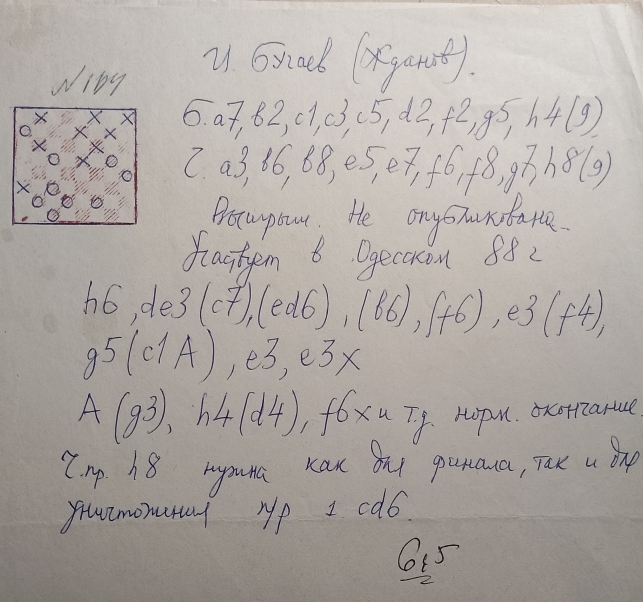 И. Бугаев (Жданов).
N 164
Б. a7, b2, c1, c3, c5, d2, f2, g5, h4 (9)
Ч. a3, b6, b8, e5, e7, f6, f8, g7, h8 (9)
Выигрыш. Не опубликована.
Участвует в Одесском 88 г
h6, de3 (c7), (ed6), (b6), (f6), e3 (f4),
g5 (c1 A), e3, e3x
A (g3), h4 (d4), f6x и т.д. норм. окончание.
Ч. пр. h8 нужна как для финала, так и для
уничтожения п/р 1. cd6.